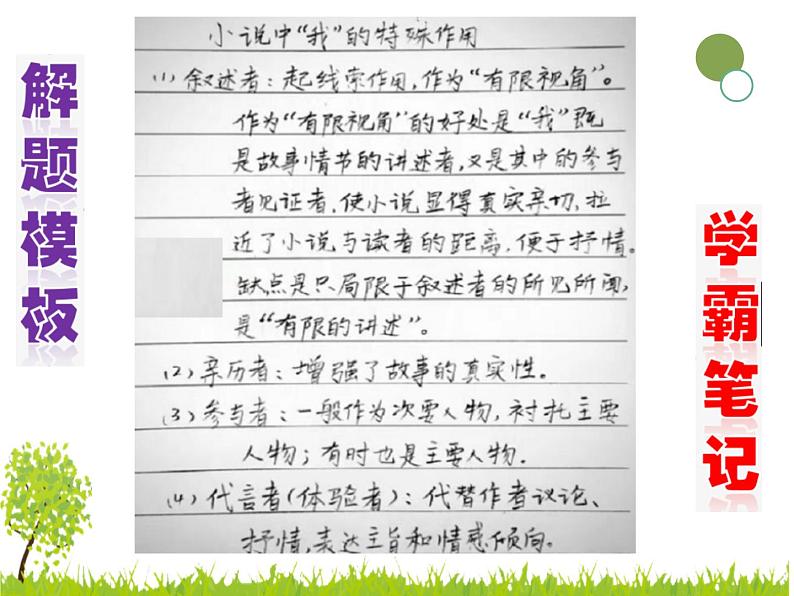 解题模板
小说中“我”的特殊作用
(1) 叙述者：起线索作用，作为“有限视角”。
作为“有限视角”的好处是“我”既
是故事情节的讲述者，又是其中的参与
者见证者，使小说显得真实亲切，拉
近了小说与读者的距离，便于抒情。
缺点是只局限于叙述者的所见所闻，
是“有限的讲述”。
(2) 亲历者：增强了故事的真实性。
(3) 参与者：一般作为次要人物，衬托主要
人物；有时也是主要人物．
(4) 代言者(体验者)：代替作者议论、
抒情，表达主旨和情感倾向。
学霸笔记